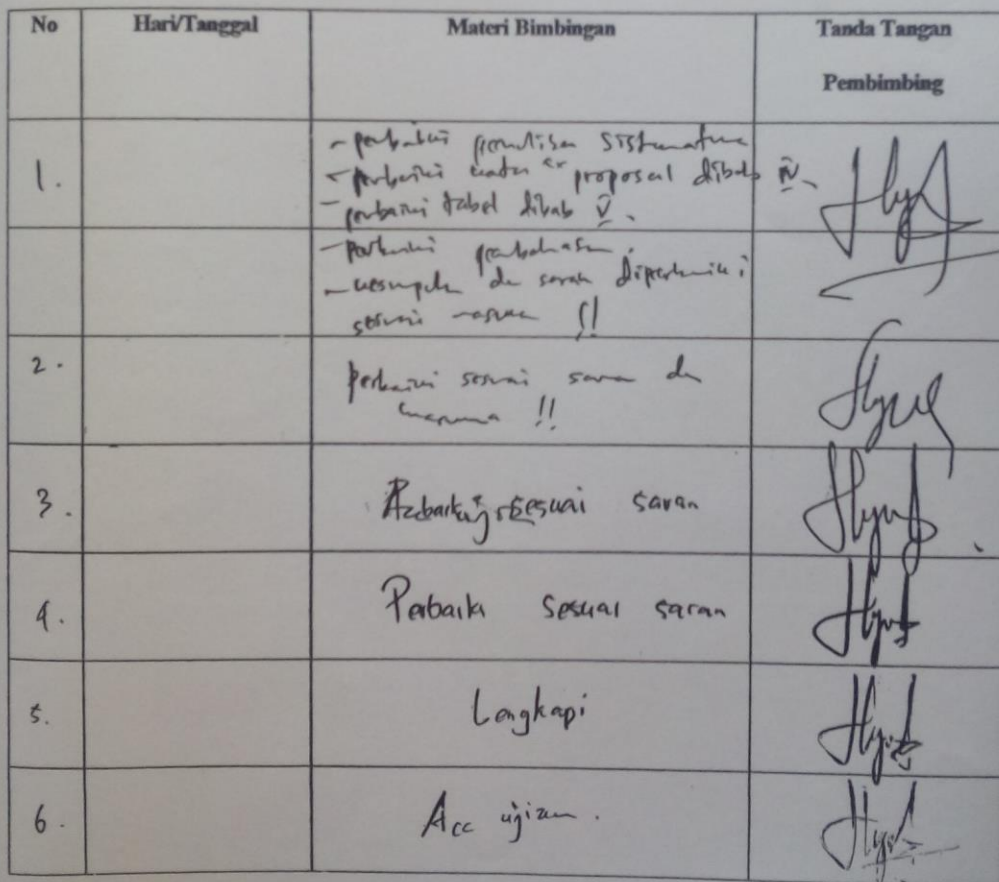 No Hari/Tanggal Materi Bimbingan Tanda Tangan
Pembimbing
1. - perbaiki penulisan sistematika
- perbaiki kata" proposal dibab IV.
- perbaiki tabel dibab V.
- perbaiki pembahasan.
- kesimpulan dan saran diperbaiki
sesuai !!
2. perbaiki sesuai saran dan
!!
3. sesuai saran
4. Perbaiki sesuai saran
5. Lengkapi
6. Acc ujian.